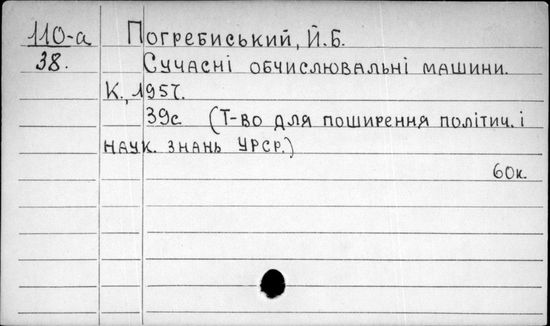 110-а Погребиський, Й.Б.
38. Сучасні обчислювальні машини.
К., 1957.
39с. (Т-во для поширення політич. і
наук. знань УРСР.)
60к.